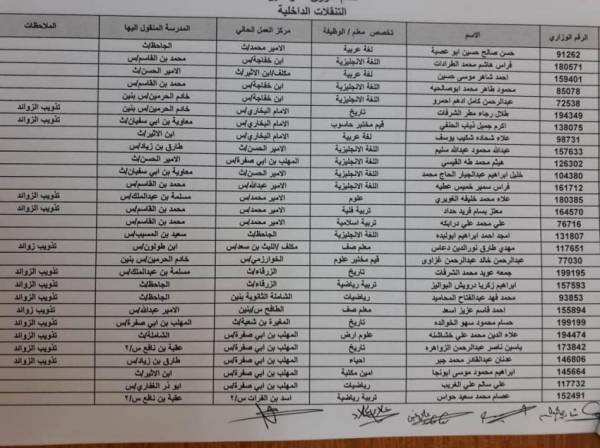 التنقلات الداخلية
الرقم الوزاري الاسم تخصص معلم / الوظيفة مركز العمل الحالي المدرسة المنقول اليها الملاحظات
91262 حسن صالح حسين ابو عصبة لغة عربية الامير محمد/ث الجاحظ/ث
180571 فراس هاشم محمد الطرادات اللغة الانجليزية ابن خفاجة/س محمد بن القاسم/س
159401 احمد شاهر موسى حسين اللغة الانجليزية مكلف/ابن الاثير/ث الامير الحسن/ث
85078 محمود طاهر محمد ابوصالحيه اللغة الانجليزية ابن خفاجة/س محمد بن القاسم/س
72538 عبدالرحمن كامل ادهم احمرو اللغة الانجليزية ابن خفاجة/س خادم الحرمين/س بنين
194349 طلال رجاء مطر الشرفات تاريخ الامام البخاري/س خادم الحرمين/س بنين تذويب الزوائد
138075 اكرم جميل ذياب الحنفي قيم مختبر حاسوب الامام البخاري/س معاوية بن ابي سفيان/ث تذويب الزوائد
98731 علاء شحاده شكيب يوسف لغة عربية الامام البخاري/س ابن الاثير/ث
157633 عبدالله محمود عبدالله سليم اللغة الانجليزية الامير الحسن/ث طارق بن زياد/س
126302 هيثم محمد طه القيسي اللغة الانجليزية المهلب بن ابي صفرة/س الامير الحسن/ث
104380 خليل ابراهيم عبدالجبار الحاج محمد اللغة الانجليزية الامير الحسن/ث معاوية بن ابي سفيان/ث
161712 فراس سمير خميس عطيه اللغة الانجليزية الامير عبدالله/س محمد بن القاسم/س
180385 علاء محمد خليفه الغويري علوم الامير محمد/ث مسلمة بن عبدالملك/س تذويب الزوائد
164570 معتز بسام فريد حداد تربية فنية محمد بن القاسم/س
76716 علي محمد علي درابكه تربية اسلامية الامير محمد/ث محمد بن القاسم/س
131807 امجد احمد ابراهيم اللغة الانجليزية الجاحظ/ث سعيد بن المسيب/س
117651 مهدي طارق نورالدين دعاس معلم صف مكلف / الليث بن سعد/س ابن طولون/س تذويب زوائد
77030 خالد محمد عبدالرحمن غزاوي قيم مختبر علوم الخوارزمي/س خادم الحرمين/س بنين
199195 جمعه عويد محمد الشرفات تاريخ الزرقاء/ث مسلمة بن عبدالملك/س تذويب الزوائد
157593 ابراهيم زكريا درويش البواليز تربية رياضية الزرقاء/ث الجاحظ/ث تذويب الزوائد
93853 محمد فهد عبدالفتاح المحاميد رياضيات الشاملة الثانوية بنين الجاحظ/ث تذويب الزوائد
155894 احمد قاسم عزيز اسعد معلم صف الطافح/س/بنين الامير عبدالله/س تذويب الزوائد
199199 حسام محمود سهو الخوالده تاريخ المغيرة بن شعبة/ث المهلب بن ابي صفرة/س تذويب الزوائد
194474 علاء الدين محمد علي خشاشنه علوم ارض المهلب بن ابي صفرة/س الشاملة/ث تذويب الزوائد
173842 ياسين ناصر عبدالرحمن الزواهره تاريخ المهلب بن ابي صفرة/س عقبة بن نافع س/٢ تذويب الزوائد
146806 عدنان عبدالقادر محمد جبر احياء المهلب بن ابي صفرة/س طارق بن زياد/س تذويب الزوائد
145664 ابراهيم محمد موسى امين مكتبة المهلب بن ابي صفرة/س ابن الاثير/ث
117732 علي سالم علي الغريب رياضيات المهلب بن ابي صفرة/س ابو ذر الغفاري/س
152491 عصام محمد سعيد حواس تربية رياضية اسد بن الفرات س/٢ عقبة بن نافع س/٢